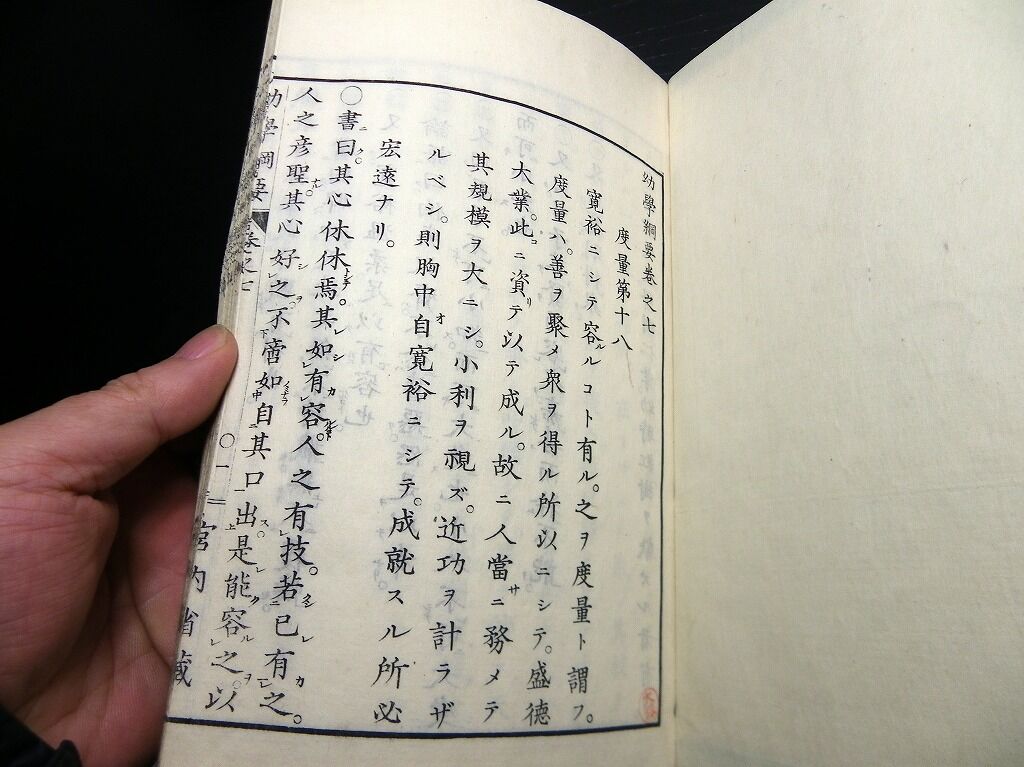 幼學綱要卷之七
度量第十八
寛裕ニシテ容ルルコト有ル。之ヲ度量ト謂フ。
度量ハ。善ヲ聚メ衆ヲ得ル所以ニシテ。盛德
大業。此コニ資リテ以テ成ル。故ニ人當サニ務メテ
其規模ヲ大ニシ。小利ヲ視ズ。近功ヲ計ラザ
ルベシ。則胸中自オ寛裕ニシテ。成就スル所必
宏遠ナリ。
〇書曰。其心休休焉。其如有容。人之有技。若己有之。
人之彦聖。其心好之。不啻如自其口出。是能容之。以
幼學綱要 卷之七 〇一 宮内省藏